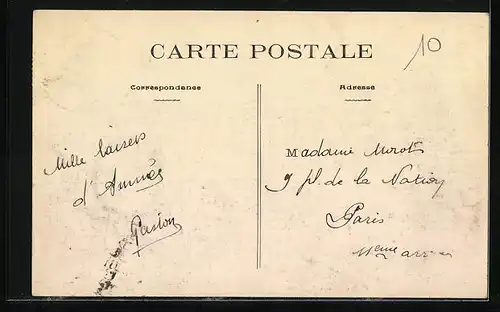 CARTE POSTALE
10
Correspondance
Adresse
Mille baisers
d'Annnès
Gaston
Madame Mirot
9 pl. de la Nation
Paris
11eme arr